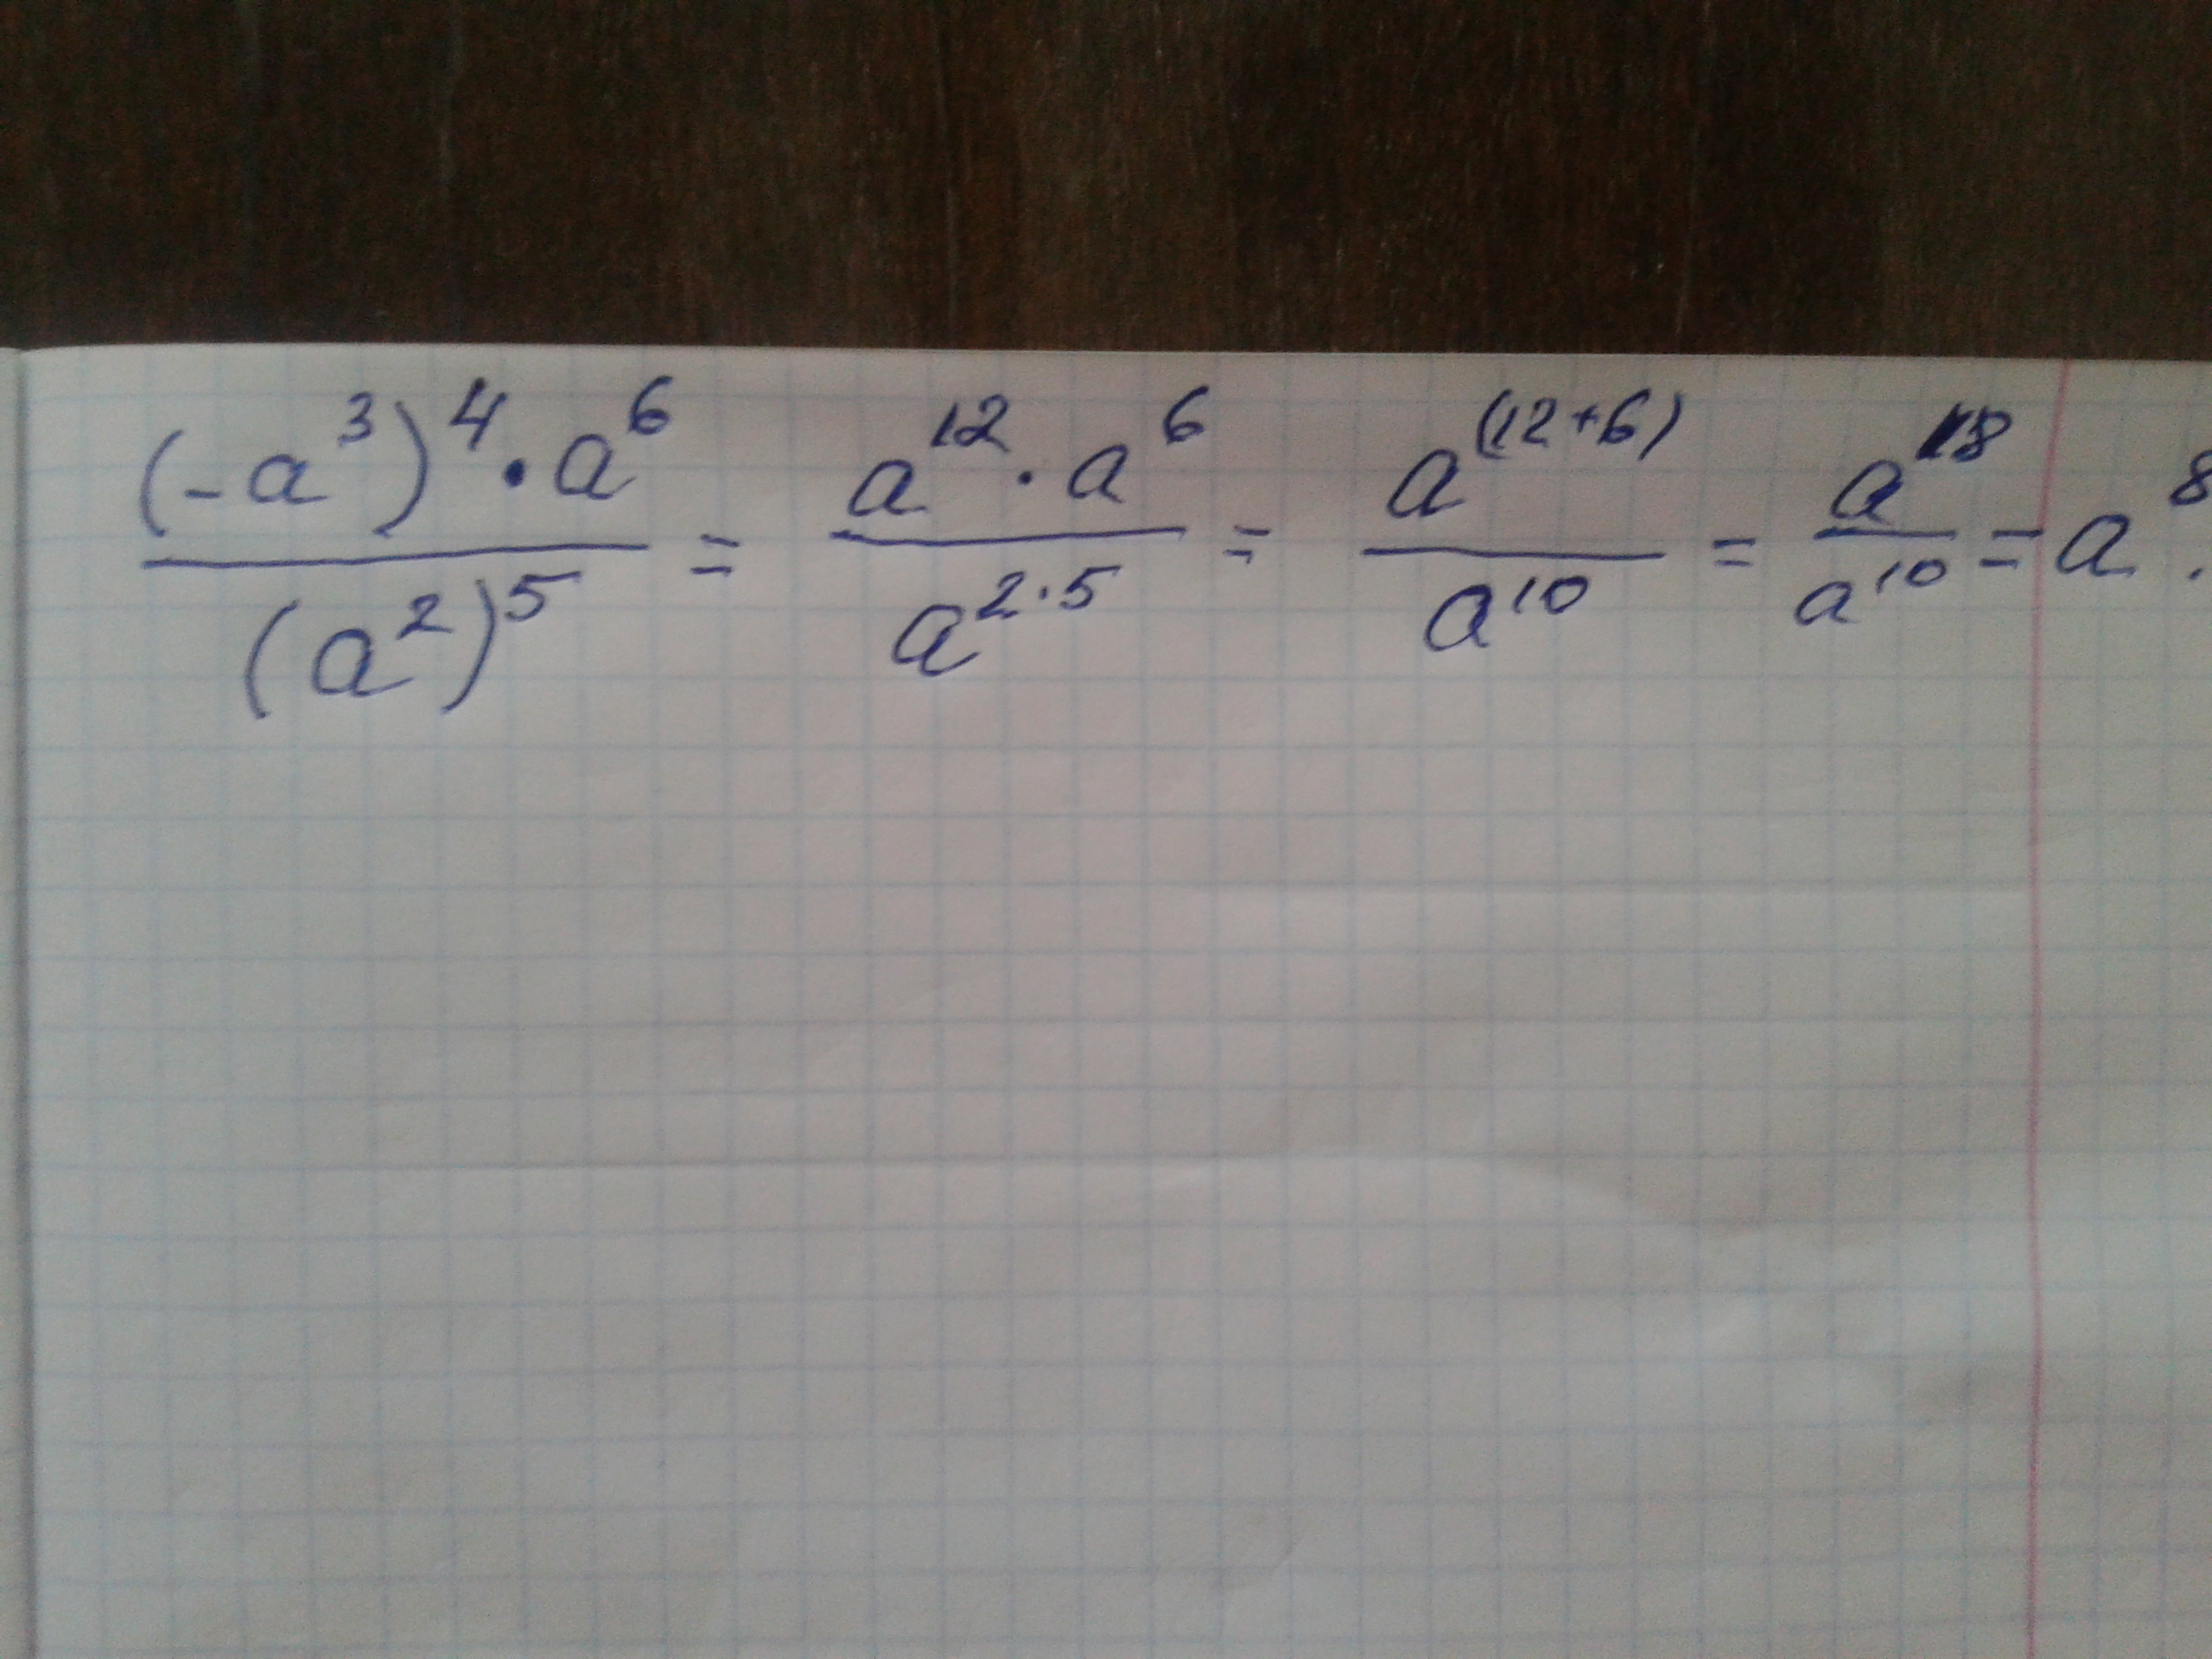 (-a³)⁴ · a⁶ / (a²)⁵ = a¹² · a⁶ / a^(2·5) = a^(12+6) / a¹⁰ = a¹⁸ / a¹⁰ = a⁸.